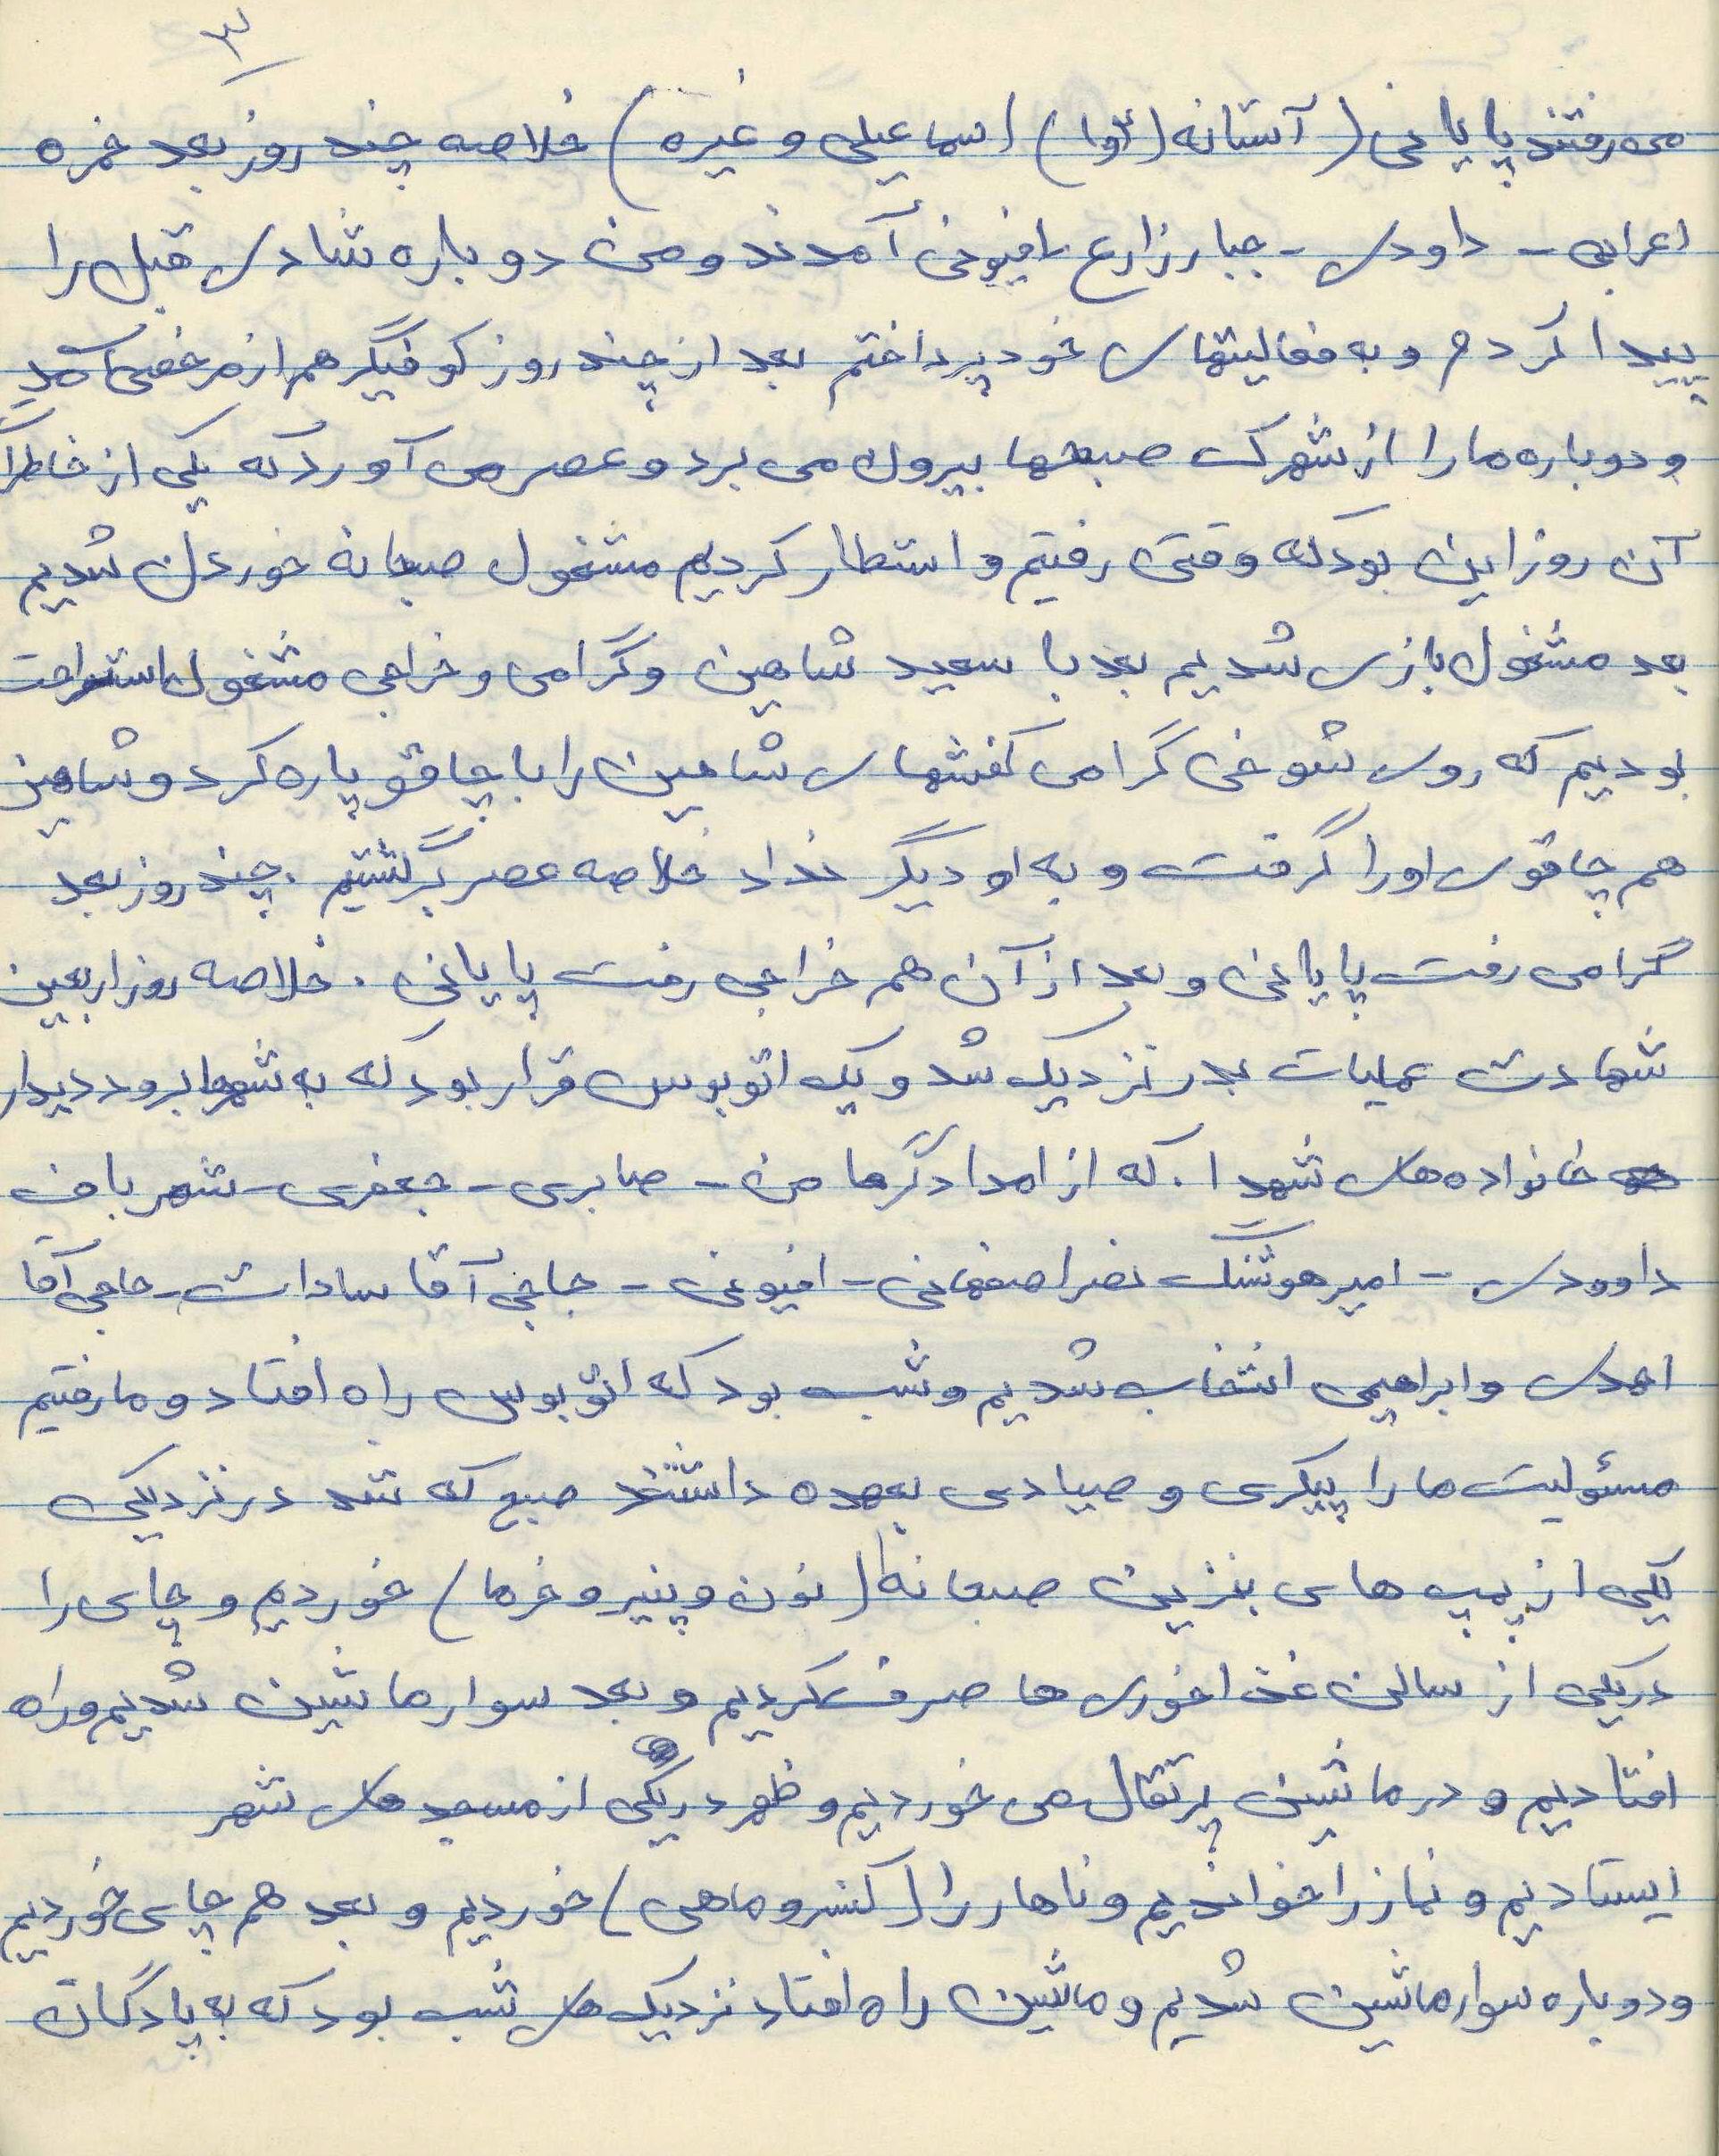 ۳
می رفتند پایانی (آستانه (آوا) اسماعیلی و غیره) خلاصه چند روز بعد خمره
اعرابی - داودی - جبار زارع افیونی آمدند و من دوباره شادی قبل را
پیدا کردم و به فعالیتهای خود پرداختم بعد از چند روز کوفیگر هم از مرخصی آمد
و دوباره ما را از شهرک صبحها بیرون می برد و عصر می آورد که یکی از خاطرات
آن روز این بود که وقتی رفتیم و استطار کردیم مشغول صبحانه خوردن شدیم
بعد مشغول بازی شدیم بعد با سعید شاهین و گرامی و خراجی مشغول استراحت
بودیم که روی شوخی گرامی کفشهای شاهین را با چاقو پاره کرد و شاهین
هم چاقوی او را گرفت و به او دیگر نداد خلاصه عصر برگشتیم . چند روز بعد
گرامی رفت پایانی و بعد از آن هم خراجی رفت پایانی . خلاصه روز اربعین
شهادت عملیات بدر نزدیک شد و یک اتوبوس قرار بود که به شهرها برود دیدار
خانواده های شهدا . که از امدادگرها من - صابری - جعفری - شهرباف
داوودی - امیر هوشنگ نصر اصفهانی - افیونی - حاجی آقا سادات - حاجی آقا
احدی و ابراهیمی انتخاب شدیم و شب بود که اتوبوس راه افتاد و ما رفتیم
مسئولیت ما را پیکری و صیادی بعهده داشتند صبح که شد در نزدیکی
یکی از پمپ های بنزین صبحانه (نون و پنیر و خرما) خوردیم و چای را
در یکی از سالن غذاخوری ها صرف کردیم و بعد سوار ماشین شدیم و راه
افتادیم و در ماشین پرتقال می خوردیم و ظهر در یکی از مسجد های شهر
ایستادیم و نماز را خواندیم و ناهار را (کنسرو ماهی) خوردیم و بعد هم چای خوردیم
و دوباره سوار ماشین شدیم و ماشین راه افتاد نزدیک های شب بود که به پادگان